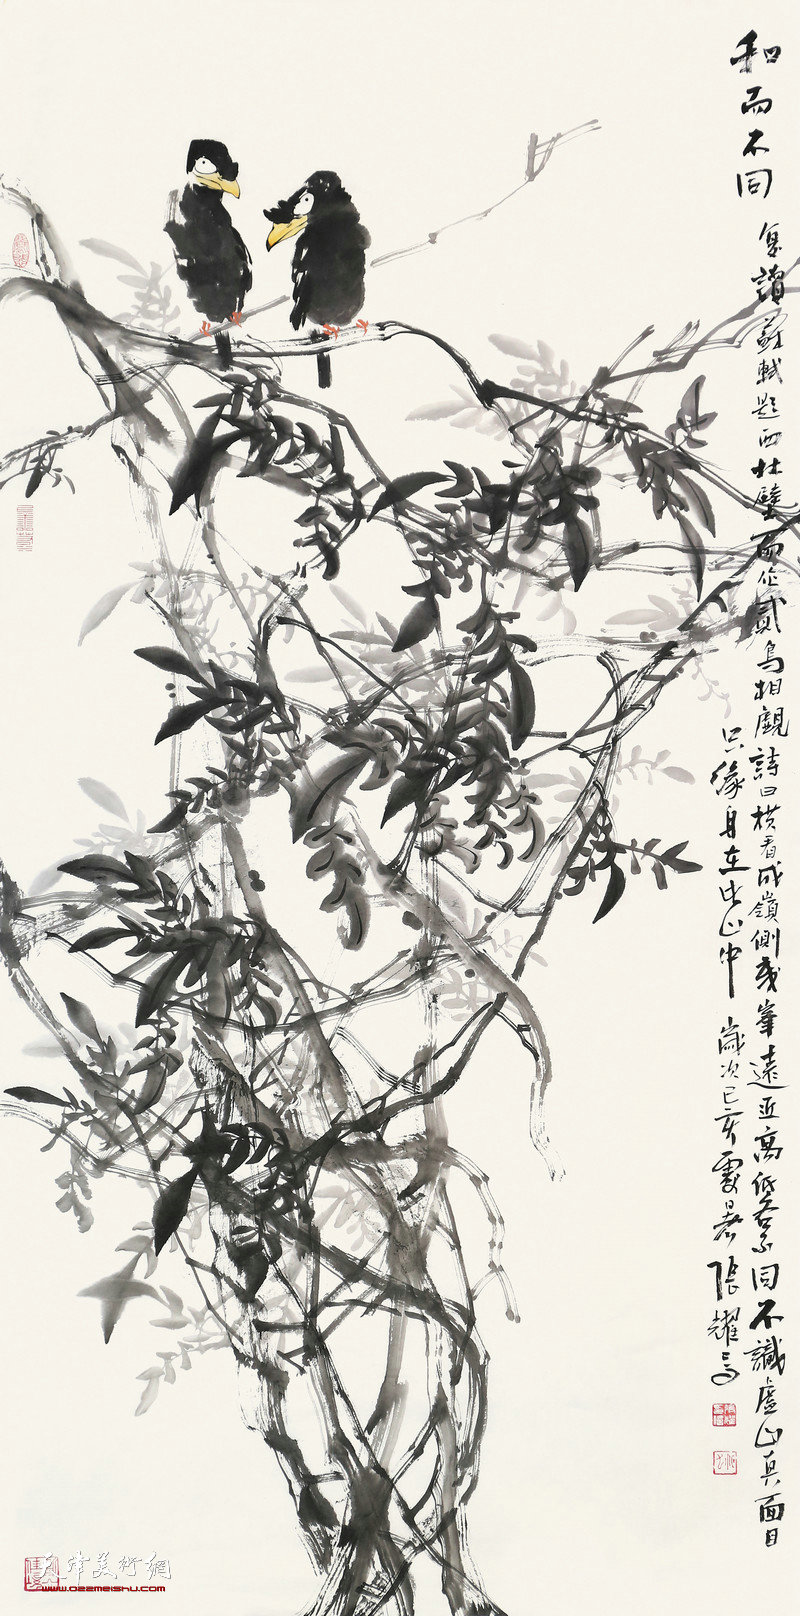 和而不同
复讀蘇軾題西林壁而作貳鳥相觀詩曰横看成嶺側成峯遠近高低各不同不識廬山真面目
只緣身在此山中 歲次己亥夏暑 張耀寫
天津美術網
www.022meishu.com